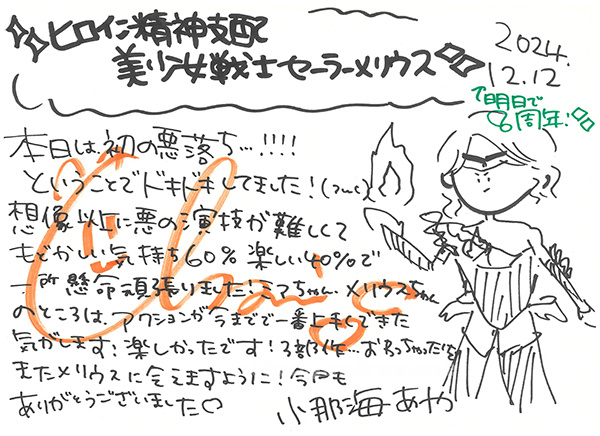 ヒロイン精神支配
美少女戦士セーラーメリウス
2024.
12.12
↑明日で
6周年!
本日は初の悪落ち…!!!!
ということでドキドキしてました!
想像以上に悪の演技が難しくて
もどかしい気持ち60% 楽しい40%で
一所懸命頑張りました! メリウスちゃん
のところは、アクションが今までで一番上手くできた
気がします! 楽しかったです! 3部作…おわっちゃったけど
またメリウスに会えますように! 今日も
ありがとうございました♡
小那海あや